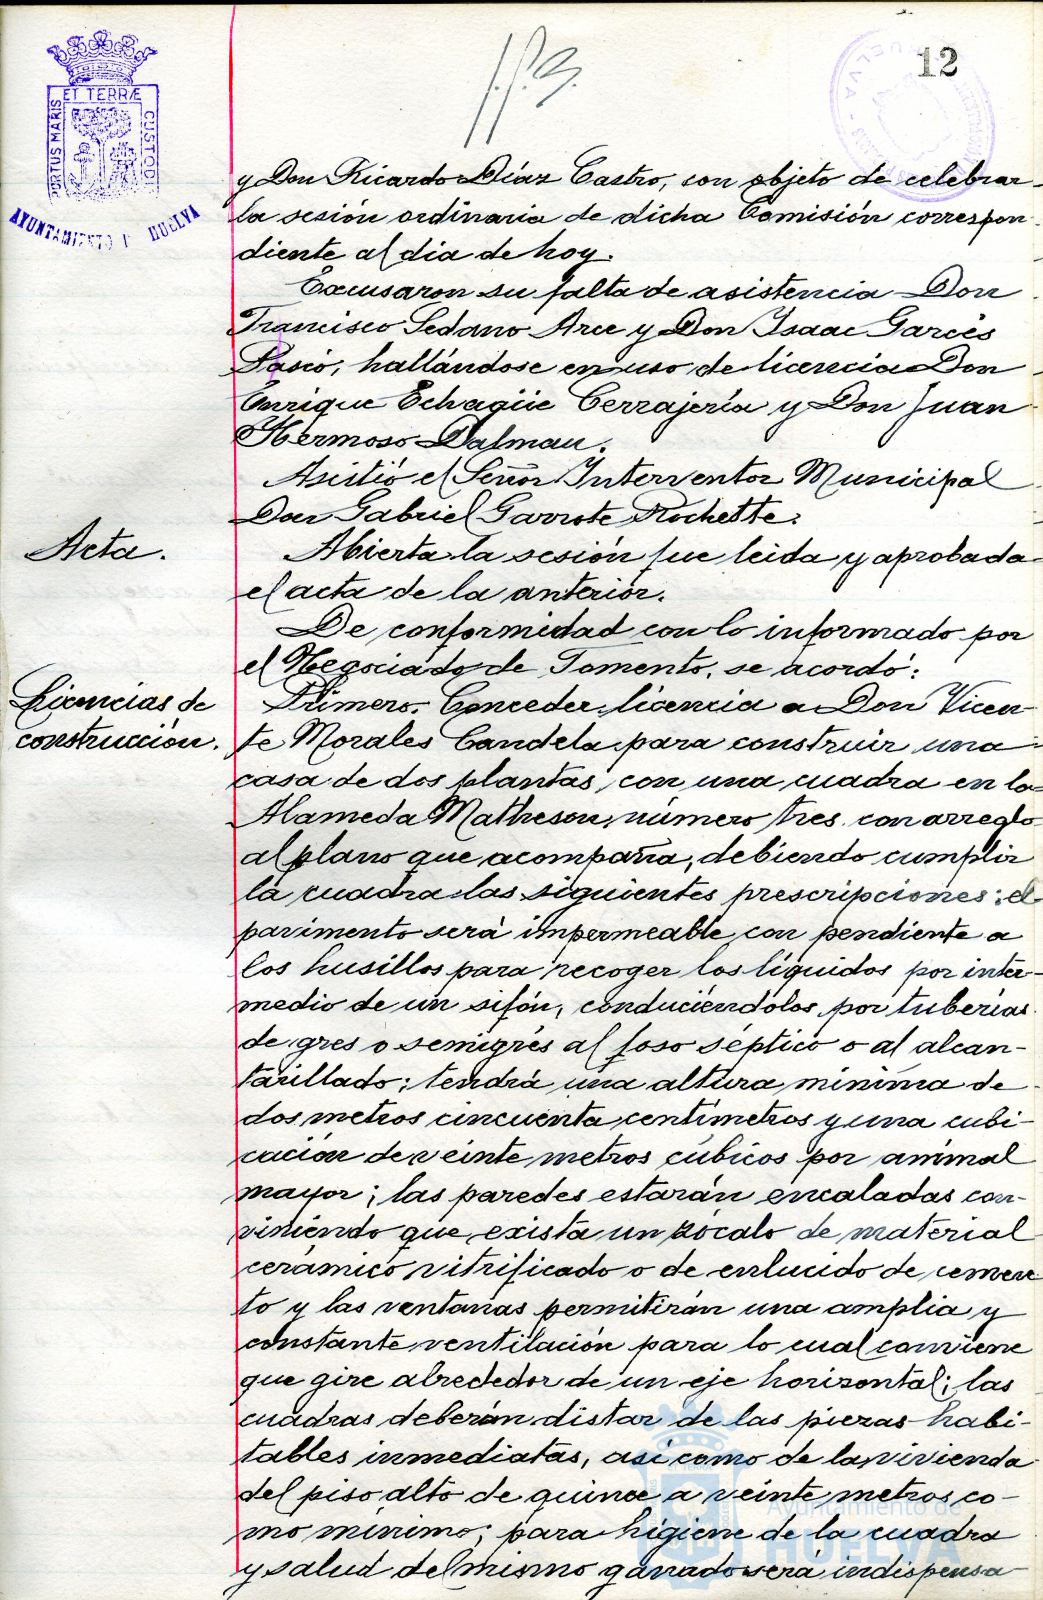 12
ET TERRÆ
PORTUS MARIS
CUSTODI
AYUNTAMIENTO HUELVA
y Don Ricardo Díaz Castro, con objeto de celebrar
la sesión ordinaria de dicha Comisión correspon-
diente al dia de hoy.
Excusaron su falta de asistencia Don
Francisco Sedano Arce y Don Isaac Garcés
Pascó, hallándose en uso de licencia Don
Enrique Echagüe Cerrajería y Don Juan
Hermoso Dalmau.
Asistió el Señor Interventor Municipal
Don Gabriel Garrote Rochette.
Acta.
Abierta la sesión fue leida y aprobada
el acta de la anterior.
De conformidad con lo informado por
el Negociado de Fomento, se acordó:
Licencias de
construcción.
Primero. Conceder licencia a Don Vicen-
te Morales Candela para construir una
casa de dos plantas, con una cuadra en la
Alameda Matheson, número tres con arreglo
al plano que acompaña, debiendo cumplir
la cuadra las siguientes prescripciones: el
pavimento será impermeable con pendiente a
los husillos para recoger los líquidos por inter-
medio de un sifón, conduciéndolos por tuberías
de gres o semigrés al foso séptico o al alcan-
tarillado; tendrá una altura mínima de
dos metros cincuenta centímetros y una cubi-
cación de veinte metros cúbicos por animal
mayor; las paredes estarán encaladas con-
viniendo que exista un zócalo de material
cerámico vitrificado o de enlucido de cemen-
to y las ventanas permitirán una amplia y
constante ventilación para lo cual conviene
que gire alrededor de un eje horizontal; las
cuadras deberán distar de las piezas habi-
tables inmediatas, así como de la vivienda
del piso alto de quince a veinte metros co-
mo mínimo; para higiene de la cuadra
y salud del mismo ganado será indispensa-
Ayuntamiento de
HUELVA